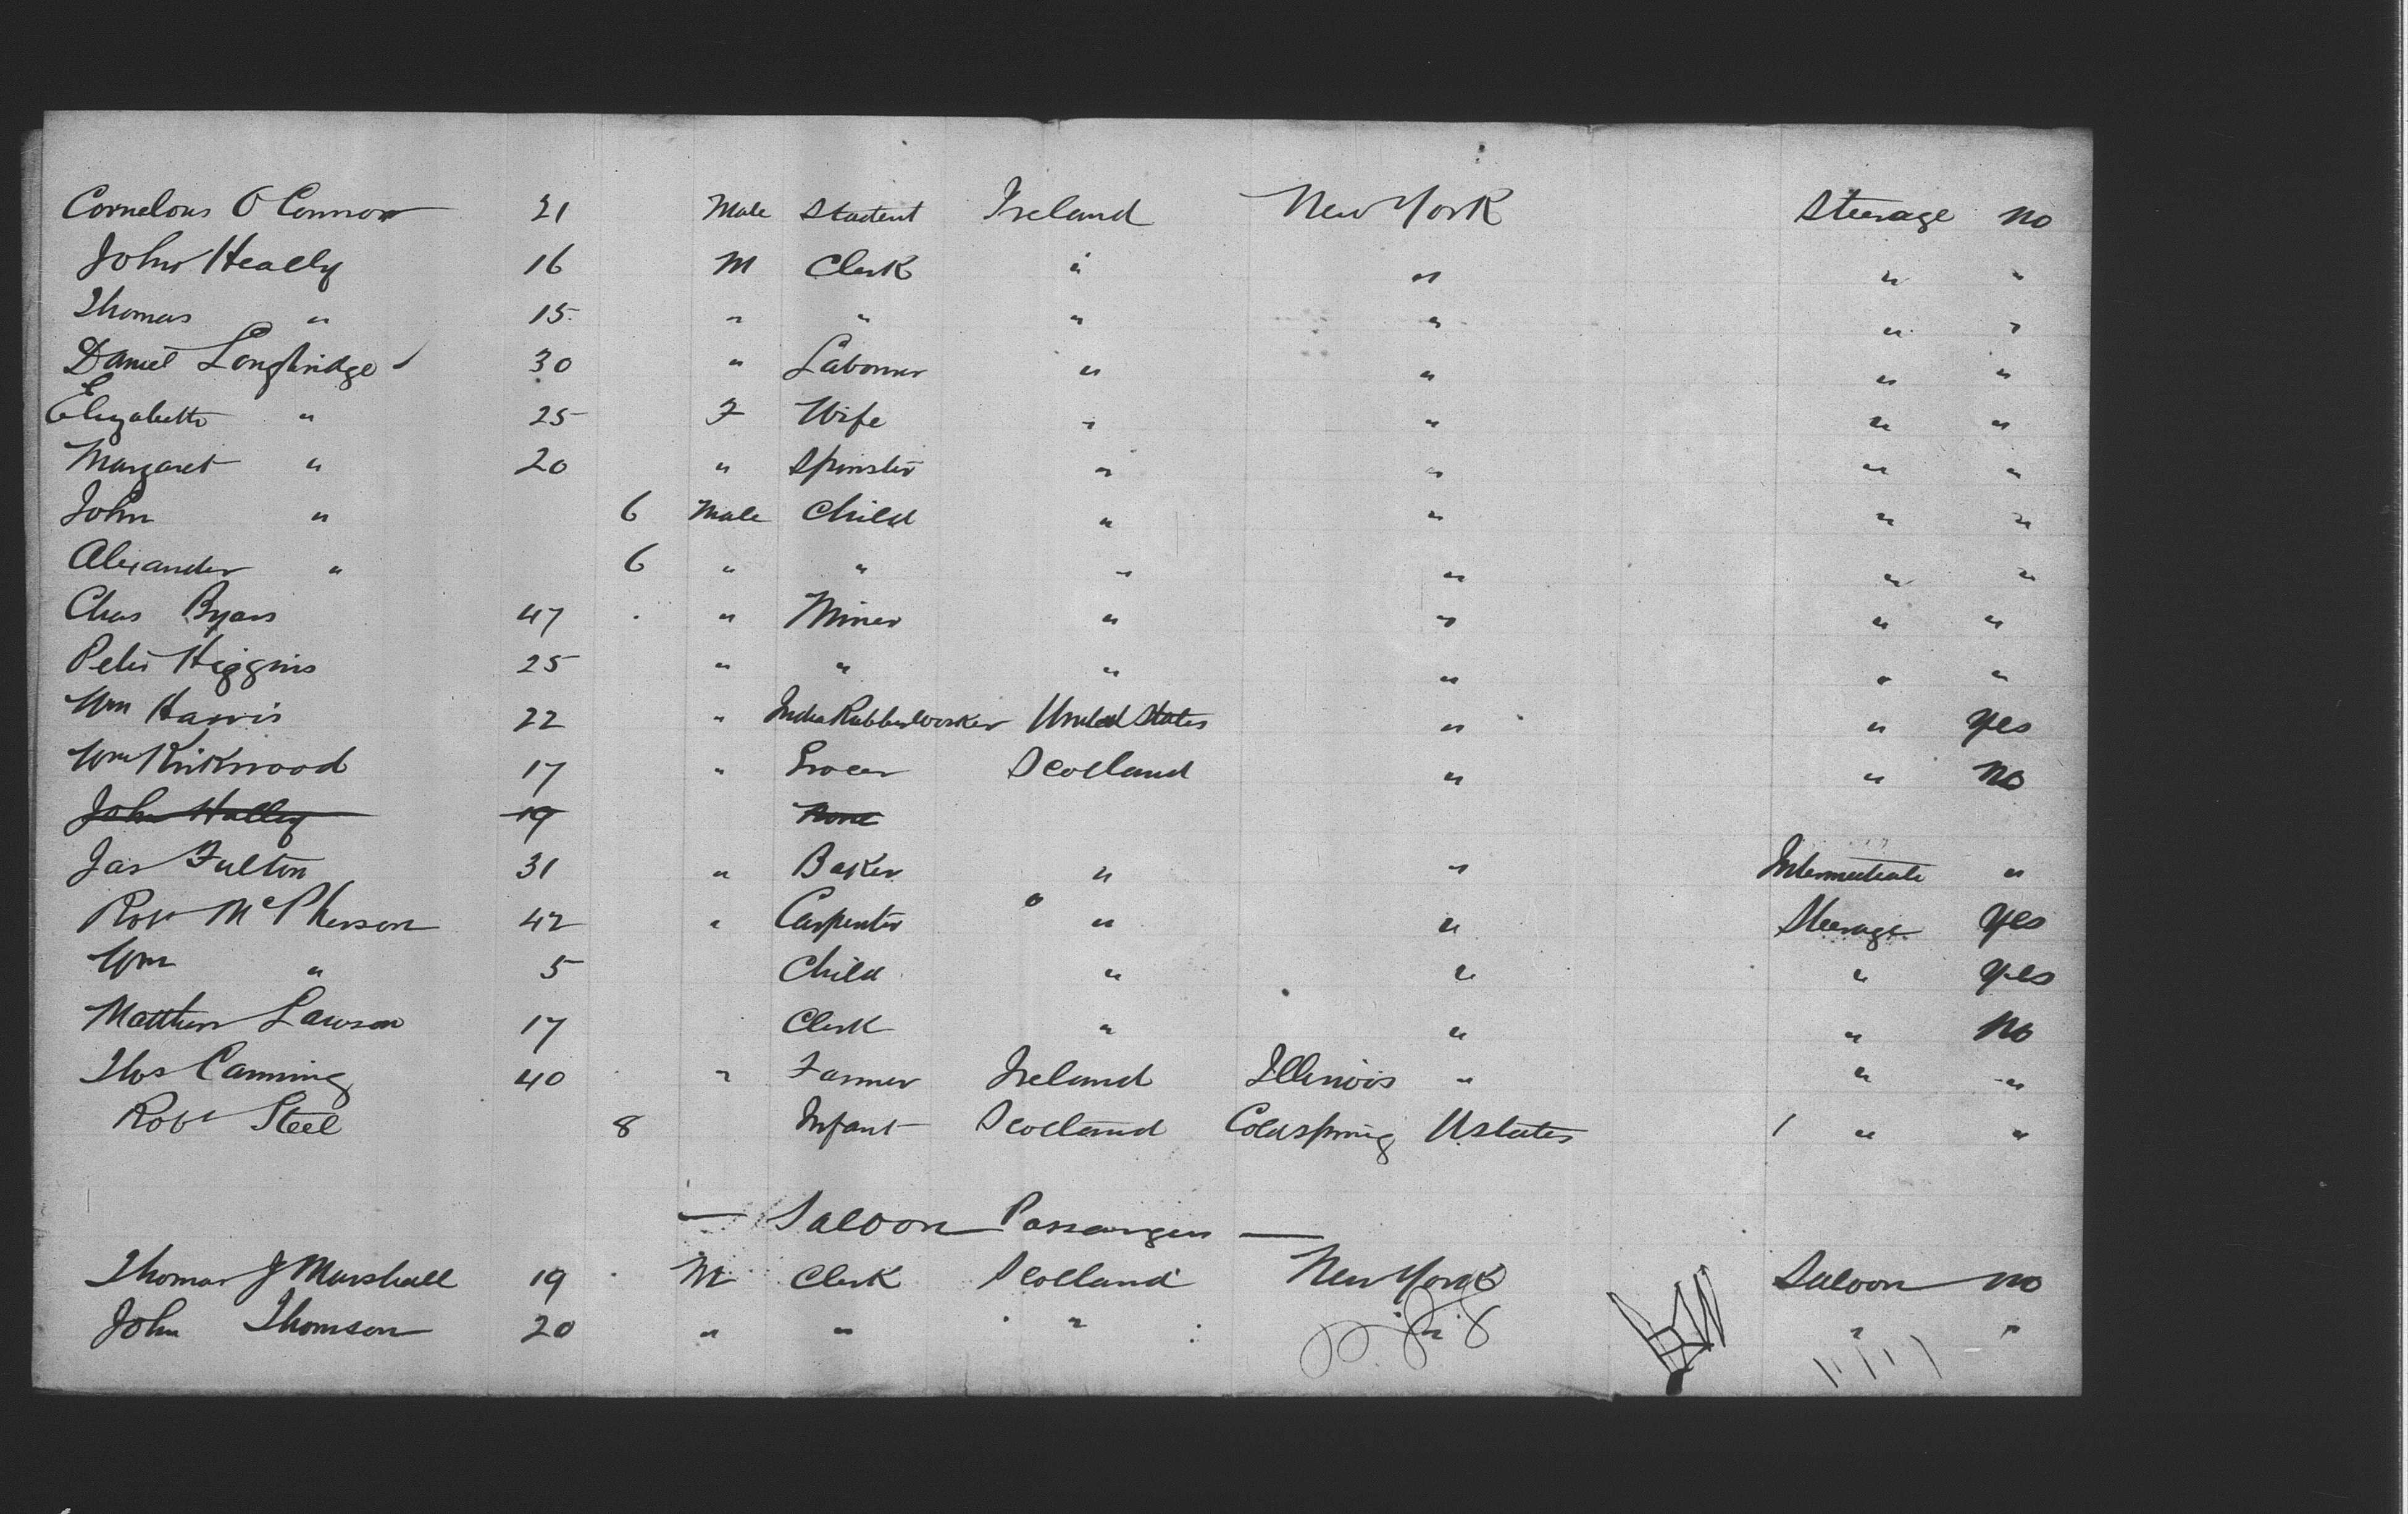 Cornelous O Connor 21 Male Student Ireland New York Steerage no
John Heally 16 M Clerk " " " "
Thomas " 15 " " " " " "
Daniel Longbridge 30 " Labourer " " " "
Elizabeth " 25 F Wife " " " "
Margaret " 20 " Spinster " " " "
John " 6 Male Child " " " "
Alexander " 6 " " " " " "
Chas Byars 47 " Miner " " " "
Peter Higgins 25 " " " " " "
Wm Harris 22 " India Rubber Worker United States " " Yes
Wm Kirkwood 17 " Grocer Scotland " " No
John Halley 19 None
Jas Fulton 31 " Baker " " Intermediate "
Robt McPherson 42 " Carpenter " " Steerage Yes
Wm " 5 Child " " " Yes
Matthew Lawson 17 Clerk " " " No
Thos Canning 40 " Farmer Ireland Illinois " " "
Robt Steel 8 Infant Scotland Coldspring U States " "
— Saloon Passengers —
Thomas J Marshall 19 M Clerk Scotland New York Saloon no
John Thomson 20 " " " " " "